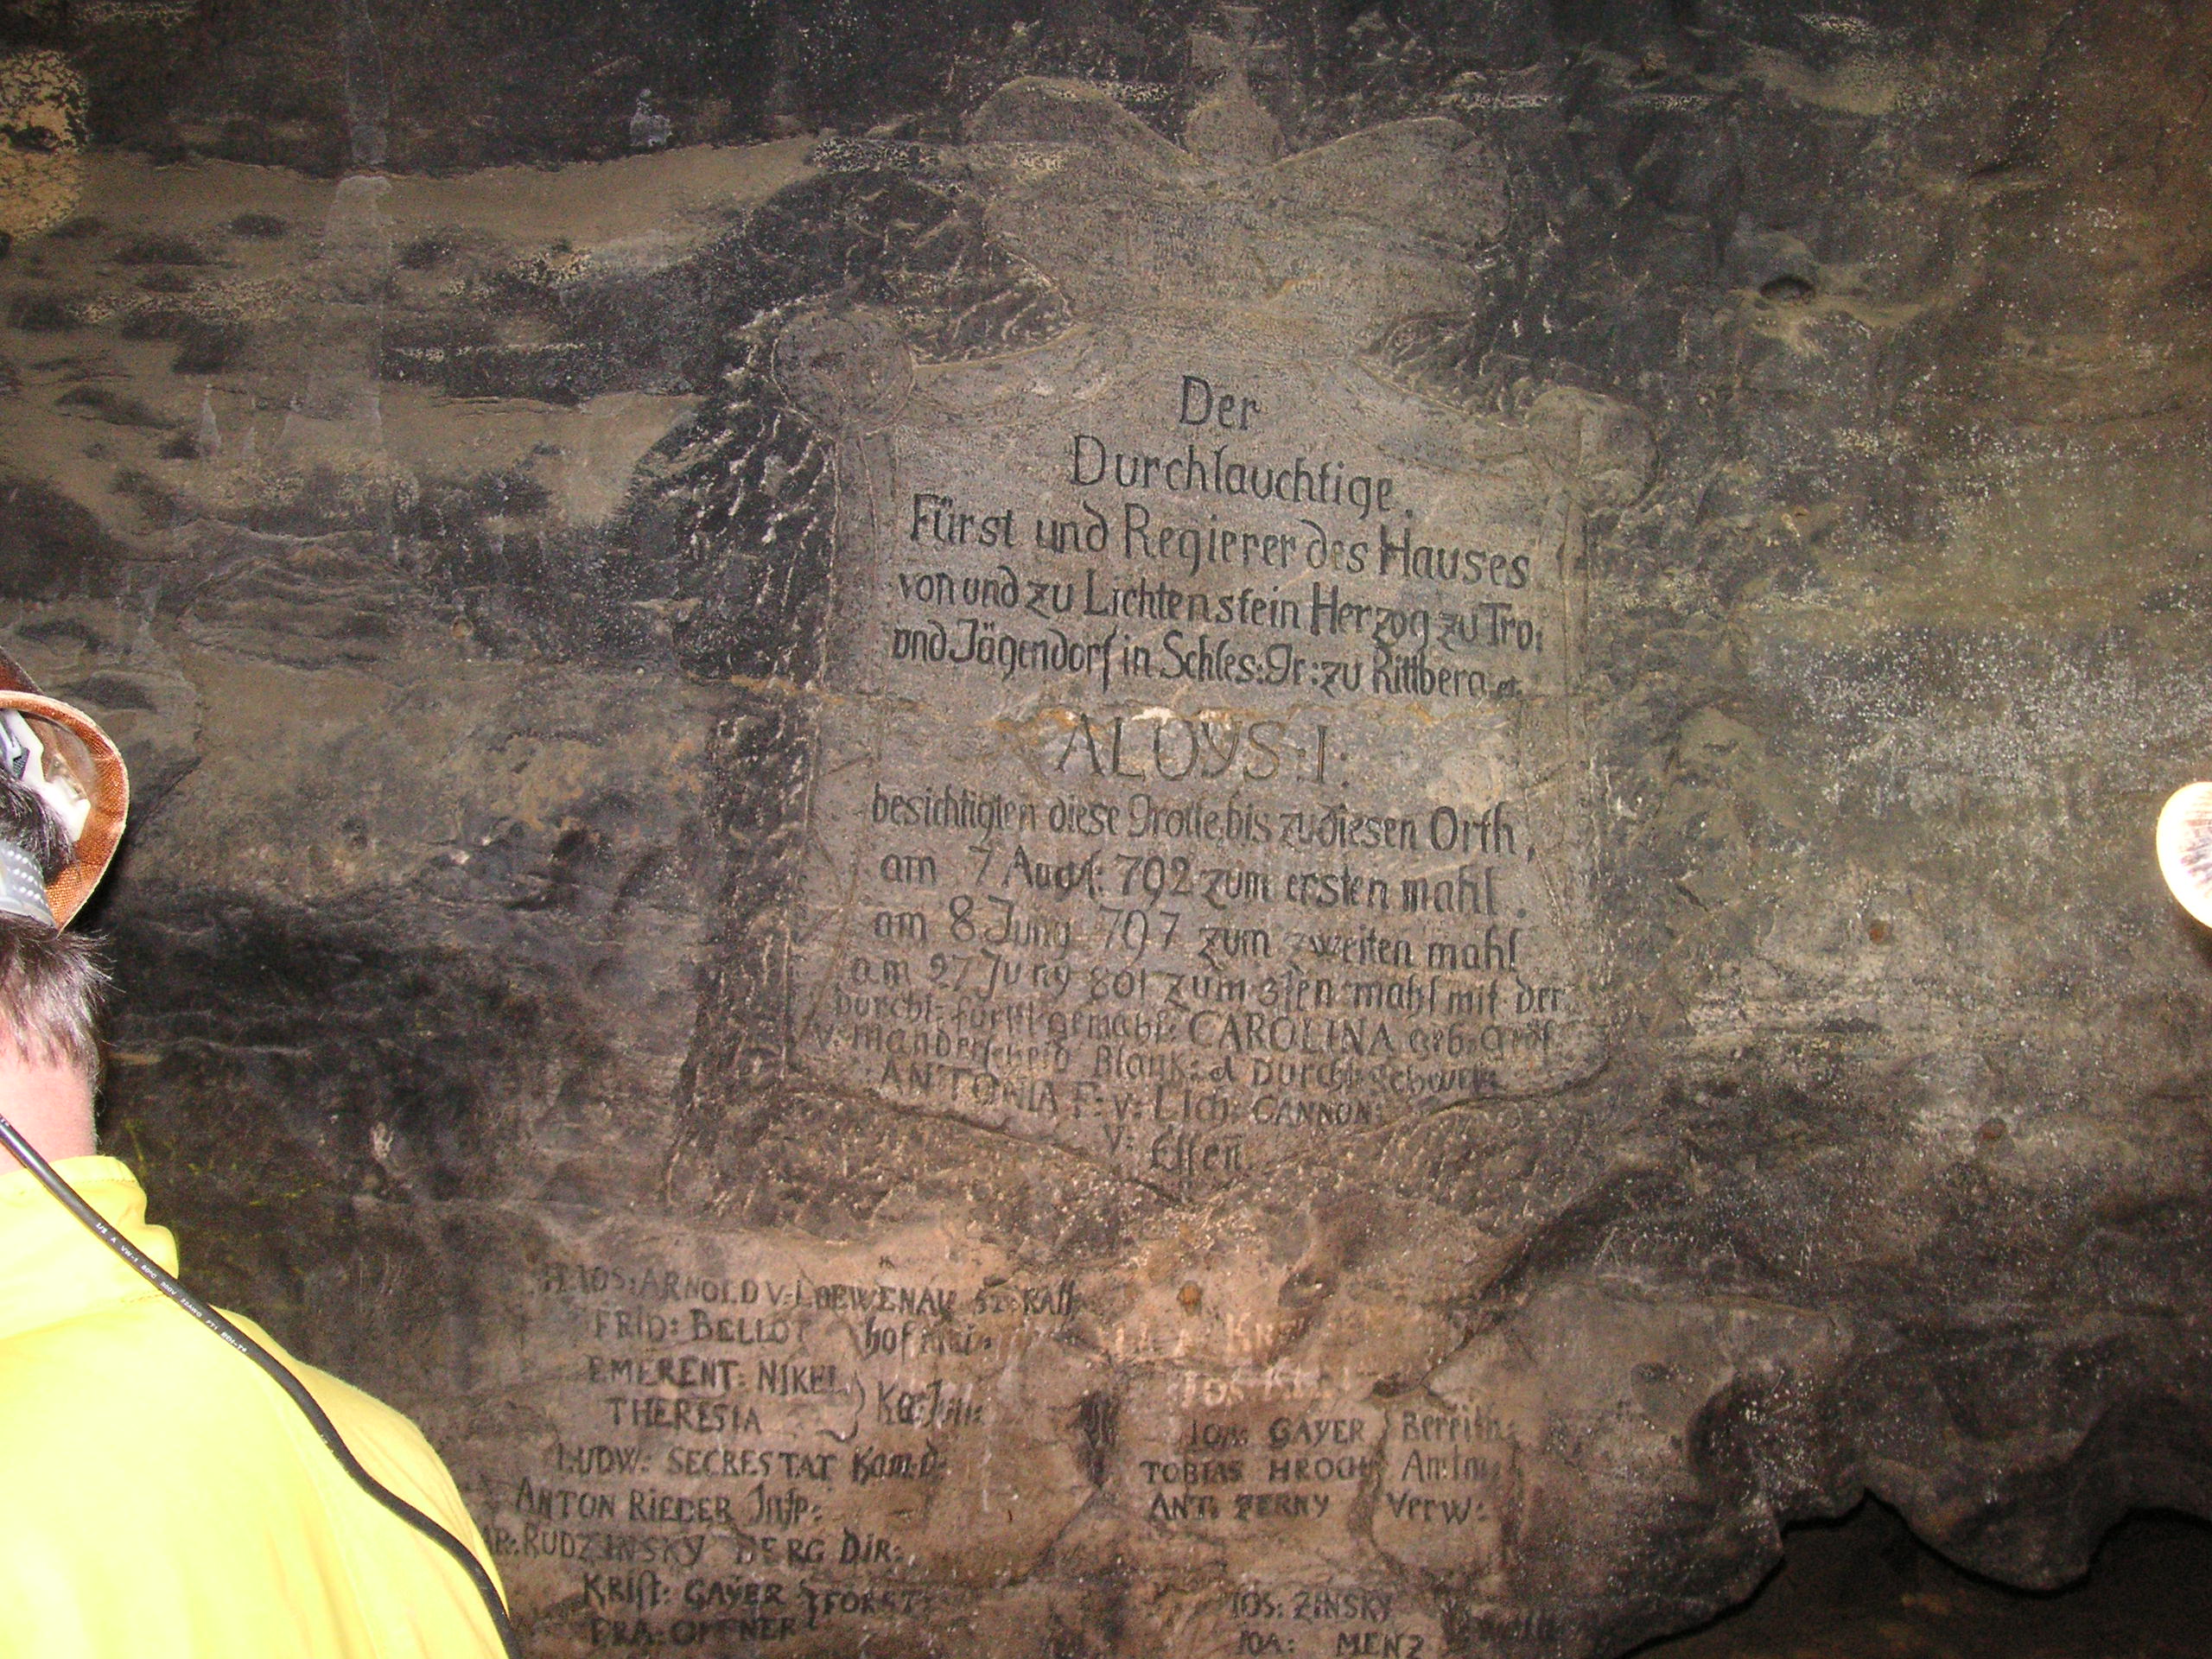 Der
Durchlauchtige.
Fürst und Regierer des Hauses
von und zu Lichtenstein Herzog zu Tro:
und Jägendorf in Schles: Gr: zu Rittberg et.
ALOYS: I:
besichtigten diese Grotte, bis zu diesen Orth,
am 7 Augst: 792 zum ersten mahl.
am 8 Juny 797 zum zweiten mahl
am 27 Juny 801 zum 3ten mahl mit der
Durchl: fürstl: gemahl: CAROLINA geb: Gräf:
v: Manderscheid Blank: d Durchl: schwest:
ANTONIA F: v: Lich: CANNON:
v: Essen
IOS: ARNOLD V: LOEWENAU
FRID: BELLOT
EMERENT: NIKEL
THERESIA
LUDW: SECRESTAT Kam: d:
ANTON RIEDER Insp:
RUDZINSKY BERG DIR:
KRIST: GAYER } FORST
FRA: OPFNER
IOA: GAYER } Bereith:
TOBIAS HROCH
ANT: ZERNY Verw:
IOS: ZINSKY
IOA: MENZ